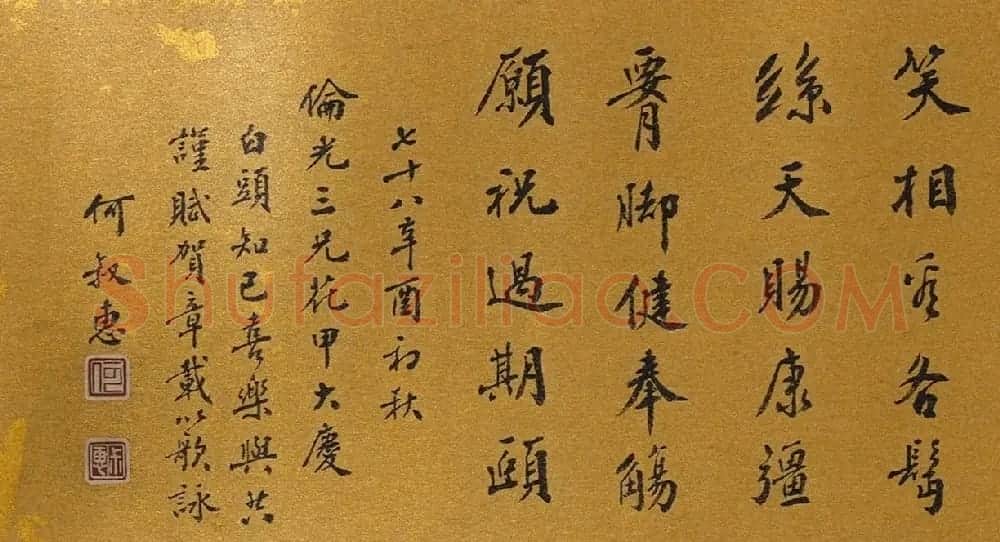 笑相看各髩
絲天賜康彊
腰脚健奉觴
願祝過期頤
七十八辛酉初秋
倫光三兄花甲大慶
白頭知己喜樂與共
謹賦賀章載以歌詠
何叔惠
何
Shufaziliao.COM